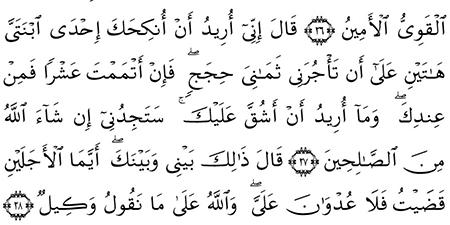 ٱلْقَوِىُّ ٱلْأَمِينُ ۝٢٦ قَالَ إِنِّىٓ أُرِيدُ أَنْ أُنكِحَكَ إِحْدَى ٱبْنَتَىَّ
هَـٰتَيْنِ عَلَىٰٓ أَن تَأْجُرَنِى ثَمَـٰنِىَ حِجَجٍ ۖ فَإِنْ أَتْمَمْتَ عَشْرًا فَمِنْ
عِندِكَ ۖ وَمَآ أُرِيدُ أَنْ أَشُقَّ عَلَيْكَ ۚ سَتَجِدُنِىٓ إِن شَآءَ ٱللَّهُ
مِنَ ٱلصَّـٰلِحِينَ ۝٢٧ قَالَ ذَٰلِكَ بَيْنِى وَبَيْنَكَ ۖ أَيَّمَا ٱلْأَجَلَيْنِ
قَضَيْتُ فَلَا عُدْوَٰنَ عَلَىَّ ۖ وَٱللَّهُ عَلَىٰ مَا نَقُولُ وَكِيلٌ ۝٢٨